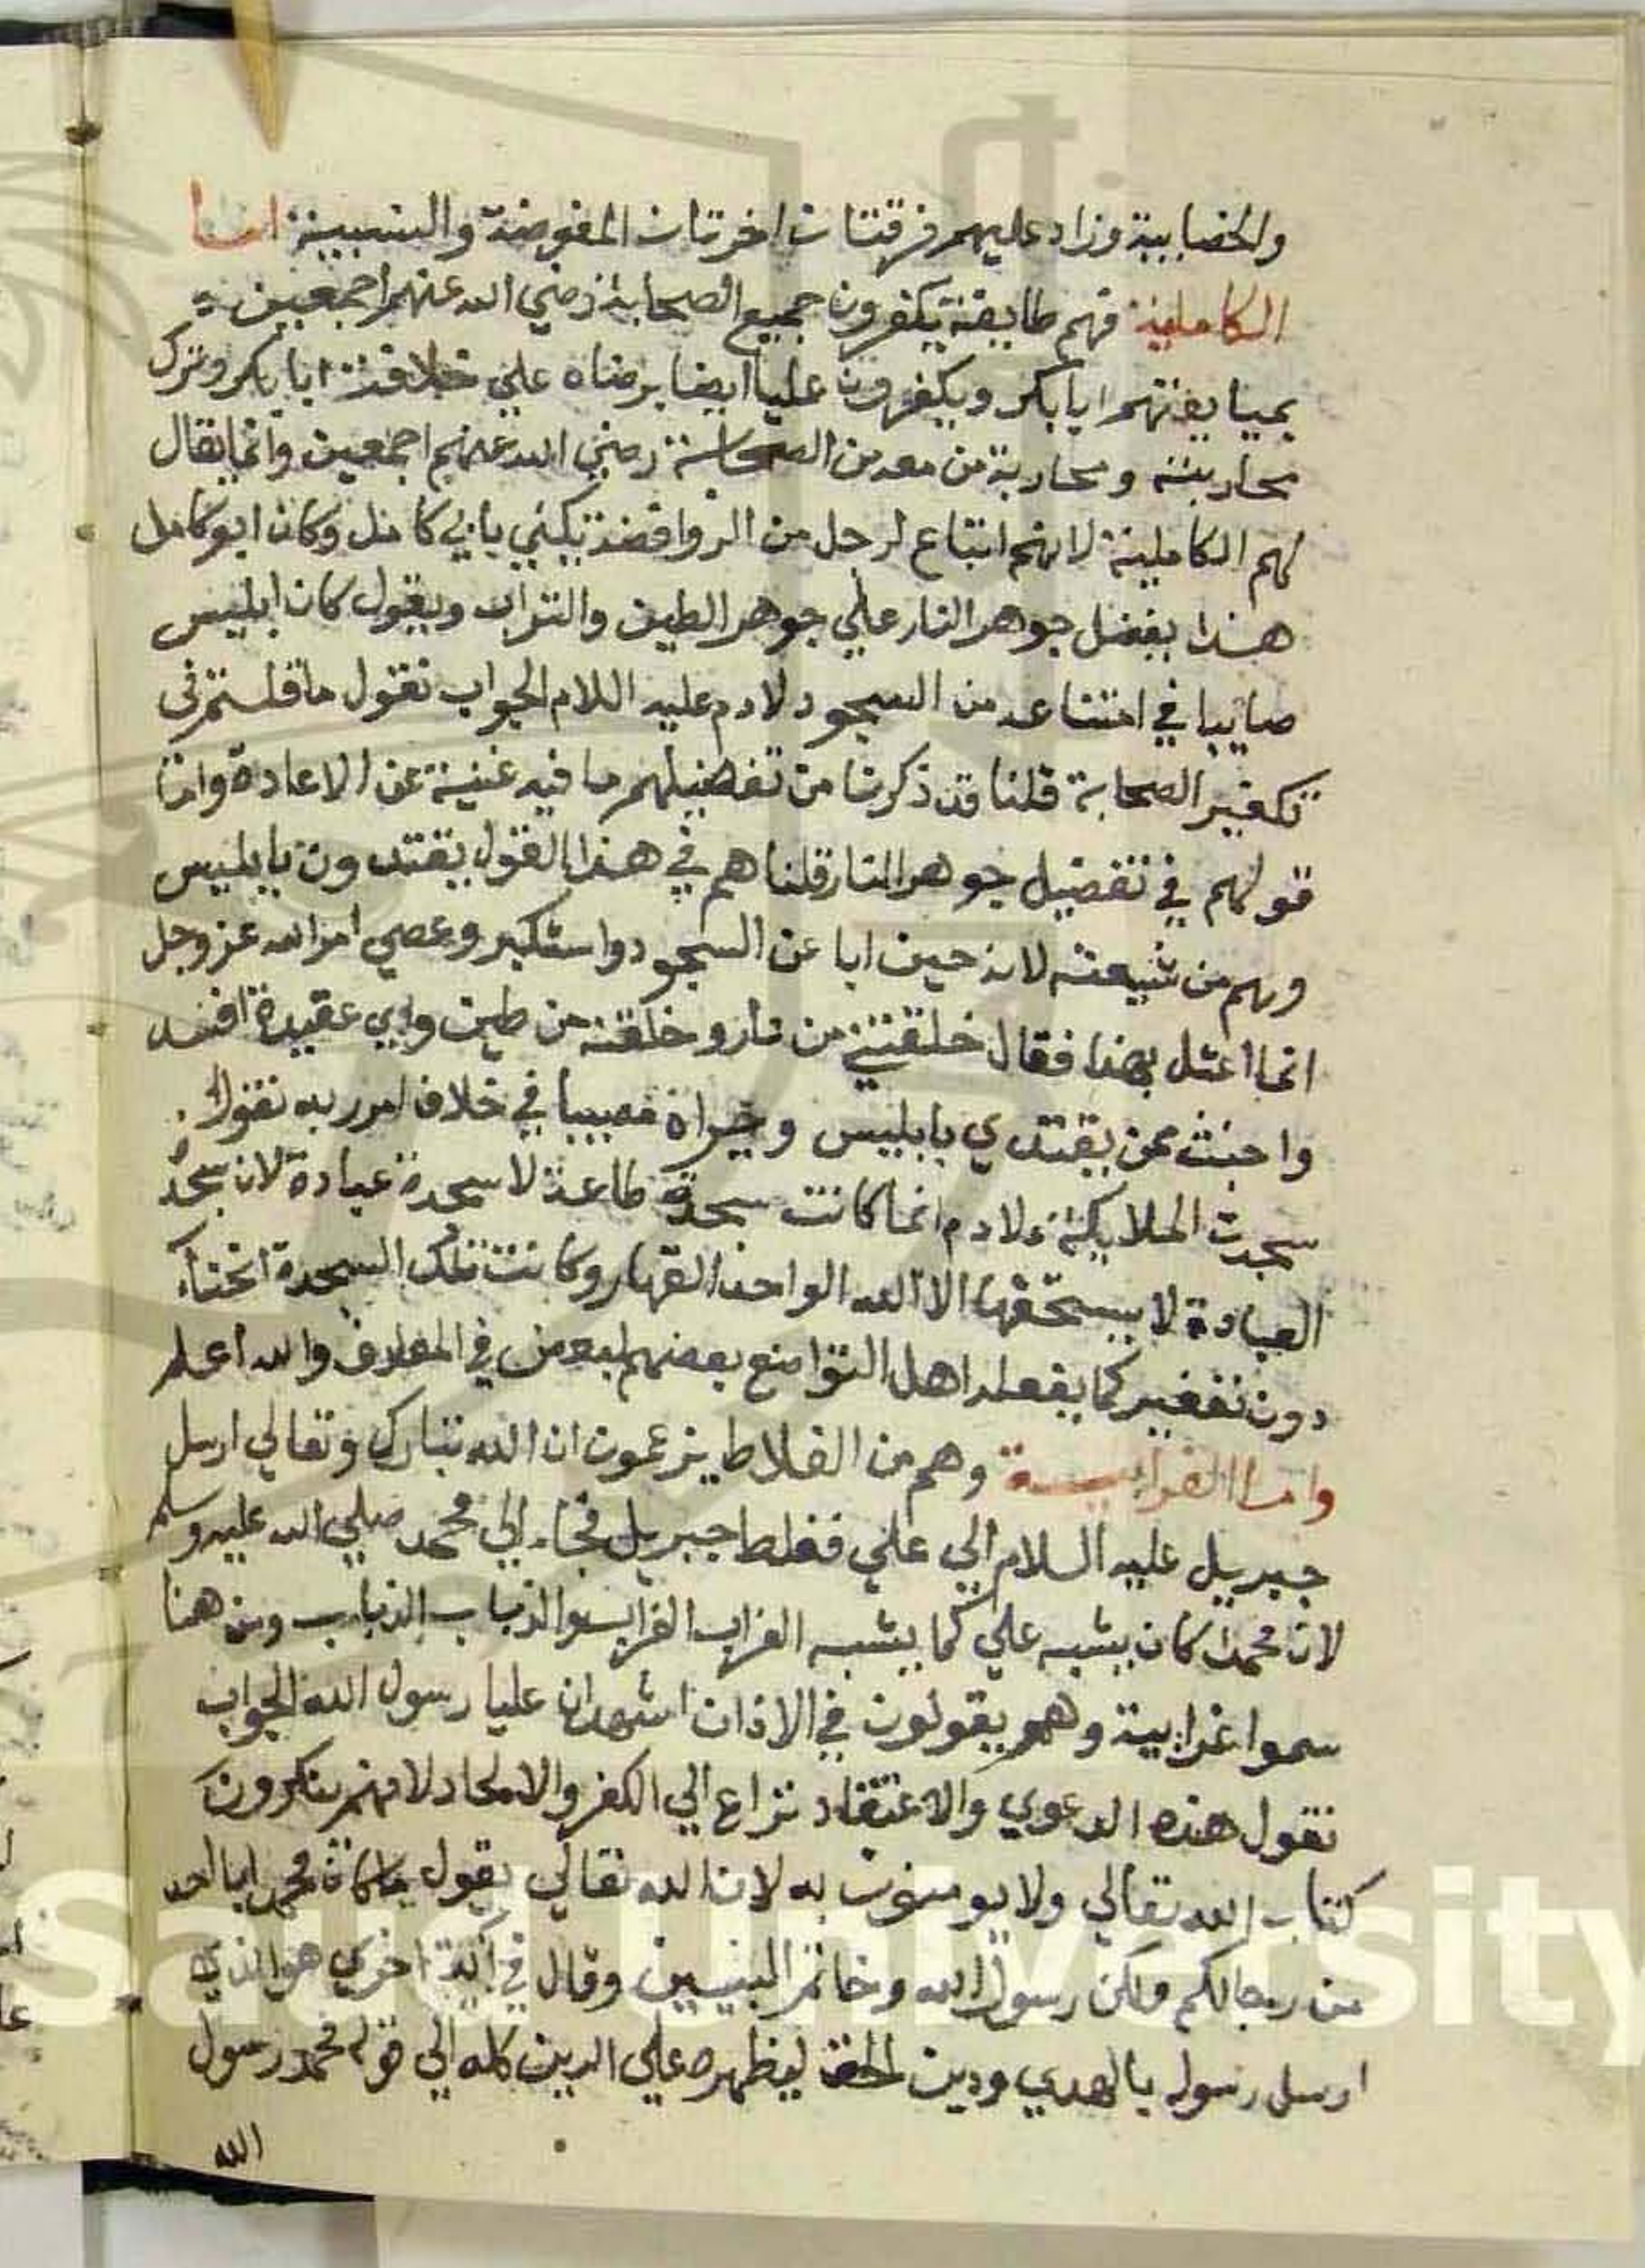 والخضابية وزاد عليهم فرقتان اخرتان المفوضة والسبيية اما
الكاملية فهم طايفة يكفرون جميع الصحابة رضي الله عنهم اجمعين
بمبايعتهم ابا بكر ويكفرون عليا ايضا برضاه علي خلافة ابا بكر وترك
محاربته ومحاربة من معه من الصحابة رضي الله عنهم اجمعين وانما يقال
لهم الكاملية لانهم اتباع لرجل من الروافضة يكني بابي كامل وكان ابو كامل
هذا يفضل جوهر النار علي جوهر الطين والتراب ويقول كان ابليس
صايبا في امتناعه من السجود لادم عليه اللام الجواب نقول ما قلتم في
تكفير الصحابة قلنا قد ذكرنا من تفضيلهم ما فيه غنية عن الاعادة واما
قولهم في تفضيل جوهر النار قلنا هم في هذا القول يقتدون بابليس
وهم من شيعته لانه حين ابا عن السجود واستكبر وعصي امر الله عز وجل
انما اعتل بهذا فقال خلقتني من نار وخلقته من طين واي عقيدة افسد
واخبث ممن يقتدي بابليس ويراه مصيبا في خلاف امر ربه نقول
سجدت الملايكة لادم انما كانت سجدة طاعة لا سجدة عبادة لان سجدة
العبادة لا يستحقها الا الله الواحد القهار وكانت تلك السجدة انحناء
دون تعفير كما يفعله اهل التواضع بعضهم لبعض في المعارف والله اعلم
واما الغرابية وهم من الغلاط يزعمون ان الله تبارك وتعالي ارسل
جبريل عليه السلام الي علي فغلط جبريل فجاء الي محمد صلي الله عليه وسلم
لان محمدا كان يشبه علي كما يشبه الغراب الغراب والذباب الذباب ومن هنا
سموا غرابية وهم يقولون في الاذان اشهد ان عليا رسول الله الجواب
نقول هذه الدعوي والاعتقاد نزاع الي الكفر والالحاد لانهم ينكرون
كتاب الله تعالي ولا يومنون به لان الله تعالي يقول ما كان محمد ابا احد
من رجالكم ولكن رسول الله وخاتم النبيين وقال في آية اخري هو الذي
ارسل رسوله بالهدي ودين الحق ليظهره علي الدين كله الي قوله محمد رسول
الله
Saud University